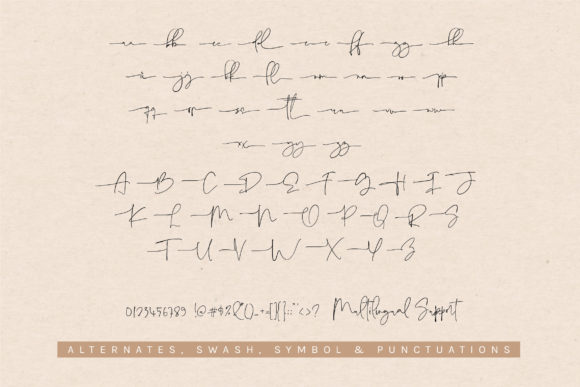 aa bb cc dd ee ff gg hh
ii jj kk ll mm nn oo pp
qq rr ss tt uu vv ww
xx yy zz
A B C D E F G H I J
K L M N O P Q R S
T U V W X Y Z
0123456789 !@#$%&*()_-+=[]{};:'"<>? Multilingual Support
ALTERNATES, SWASH, SYMBOL & PUNCTUATIONS